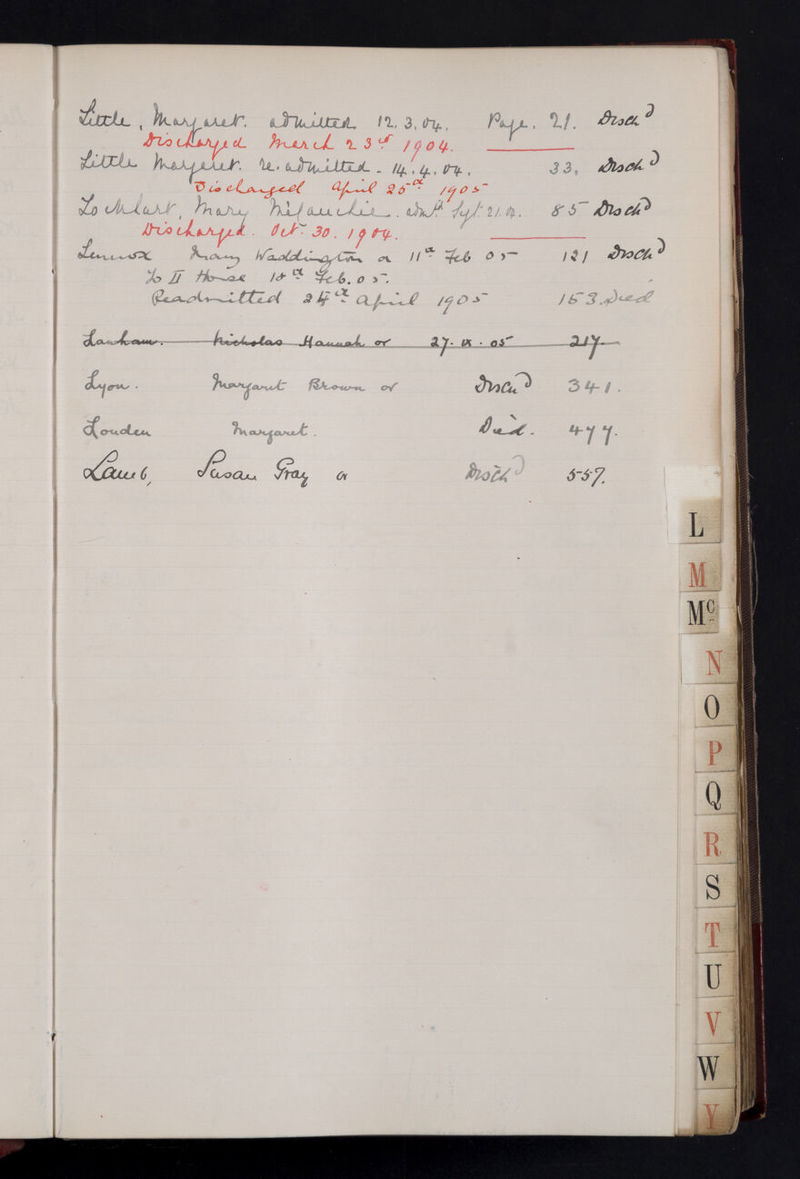 Little, Margaret. admitted 12.3.04. Page. 21. Disch^d
Discharged March 23rd 1904.
Little Margaret. re.admitted. 14.4.04. 33, Disch^d
Discharged April 25th 1905
Lockhart, Mary adm^d Sept 21. 85 Disch^d
Discharged. Oct. 30. 1904.
Lennox Mary Waddington or 11th Feb 05 121 Disch^d
To II House 18th Feb. 05.
Readmitted 24th April 1905 153. Died
Lanham. Nicholas Hannah or 27. IX. 05 217
Lyon. Margaret Brown or Disch^d 341.
Louden Margaret. Died. 477.
Lamb, Susan Gray or Disch^d 557.
L
M
Mc
N
O
P
Q
R
S
T
U
V
W
Y